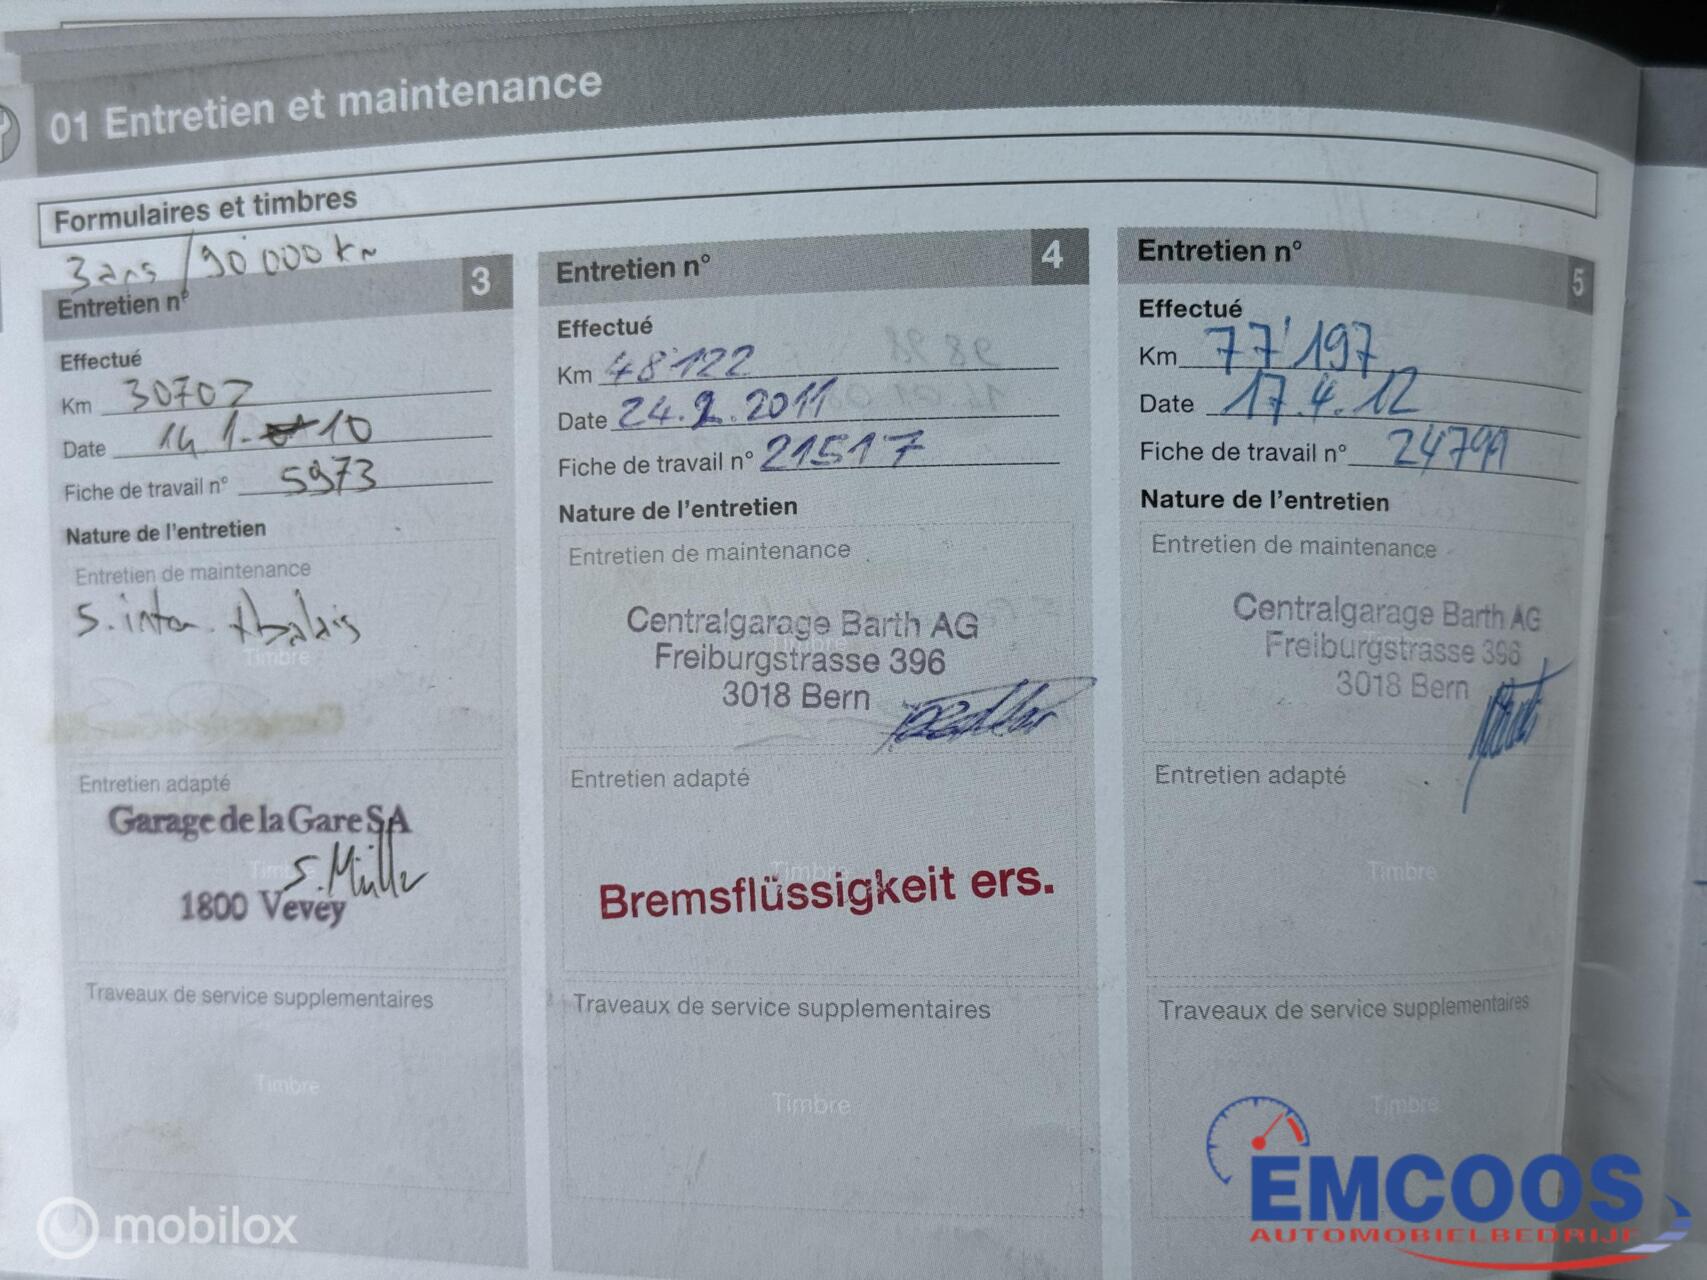 01 Entretien et maintenance
Formulaires et timbres
3 ans / 90'000 km
Entretien n° 3
Effectué
Km 30702
Date 14.1. 10
Fiche de travail n° 5973
Nature de l'entretien
Entretien de maintenance
Timbre
Entretien adapté
Garage de la Gare SA
Timbre
S. Müller
1800 Vevey
Traveaux de service supplementaires
Timbre
Entretien n° 4
Effectué
Km 48'122
Date 24.2.2011
Fiche de travail n° 21517
Nature de l'entretien
Entretien de maintenance
Centralgarage Barth AG
Freiburgstrasse 396
3018 Bern
Entretien adapté
Timbre
Bremsflüssigkeit ers.
Traveaux de service supplementaires
Timbre
Entretien n° 5
Effectué
Km 77'197
Date 17.4.12
Fiche de travail n° 24799
Nature de l'entretien
Entretien de maintenance
Centralgarage Barth AG
Freiburgstrasse 396
3018 Bern
Entretien adapté
Timbre
Traveaux de service supplementaires
Timbre
mobilox
EMCOOS
AUTOMOBIELBEDRIJF